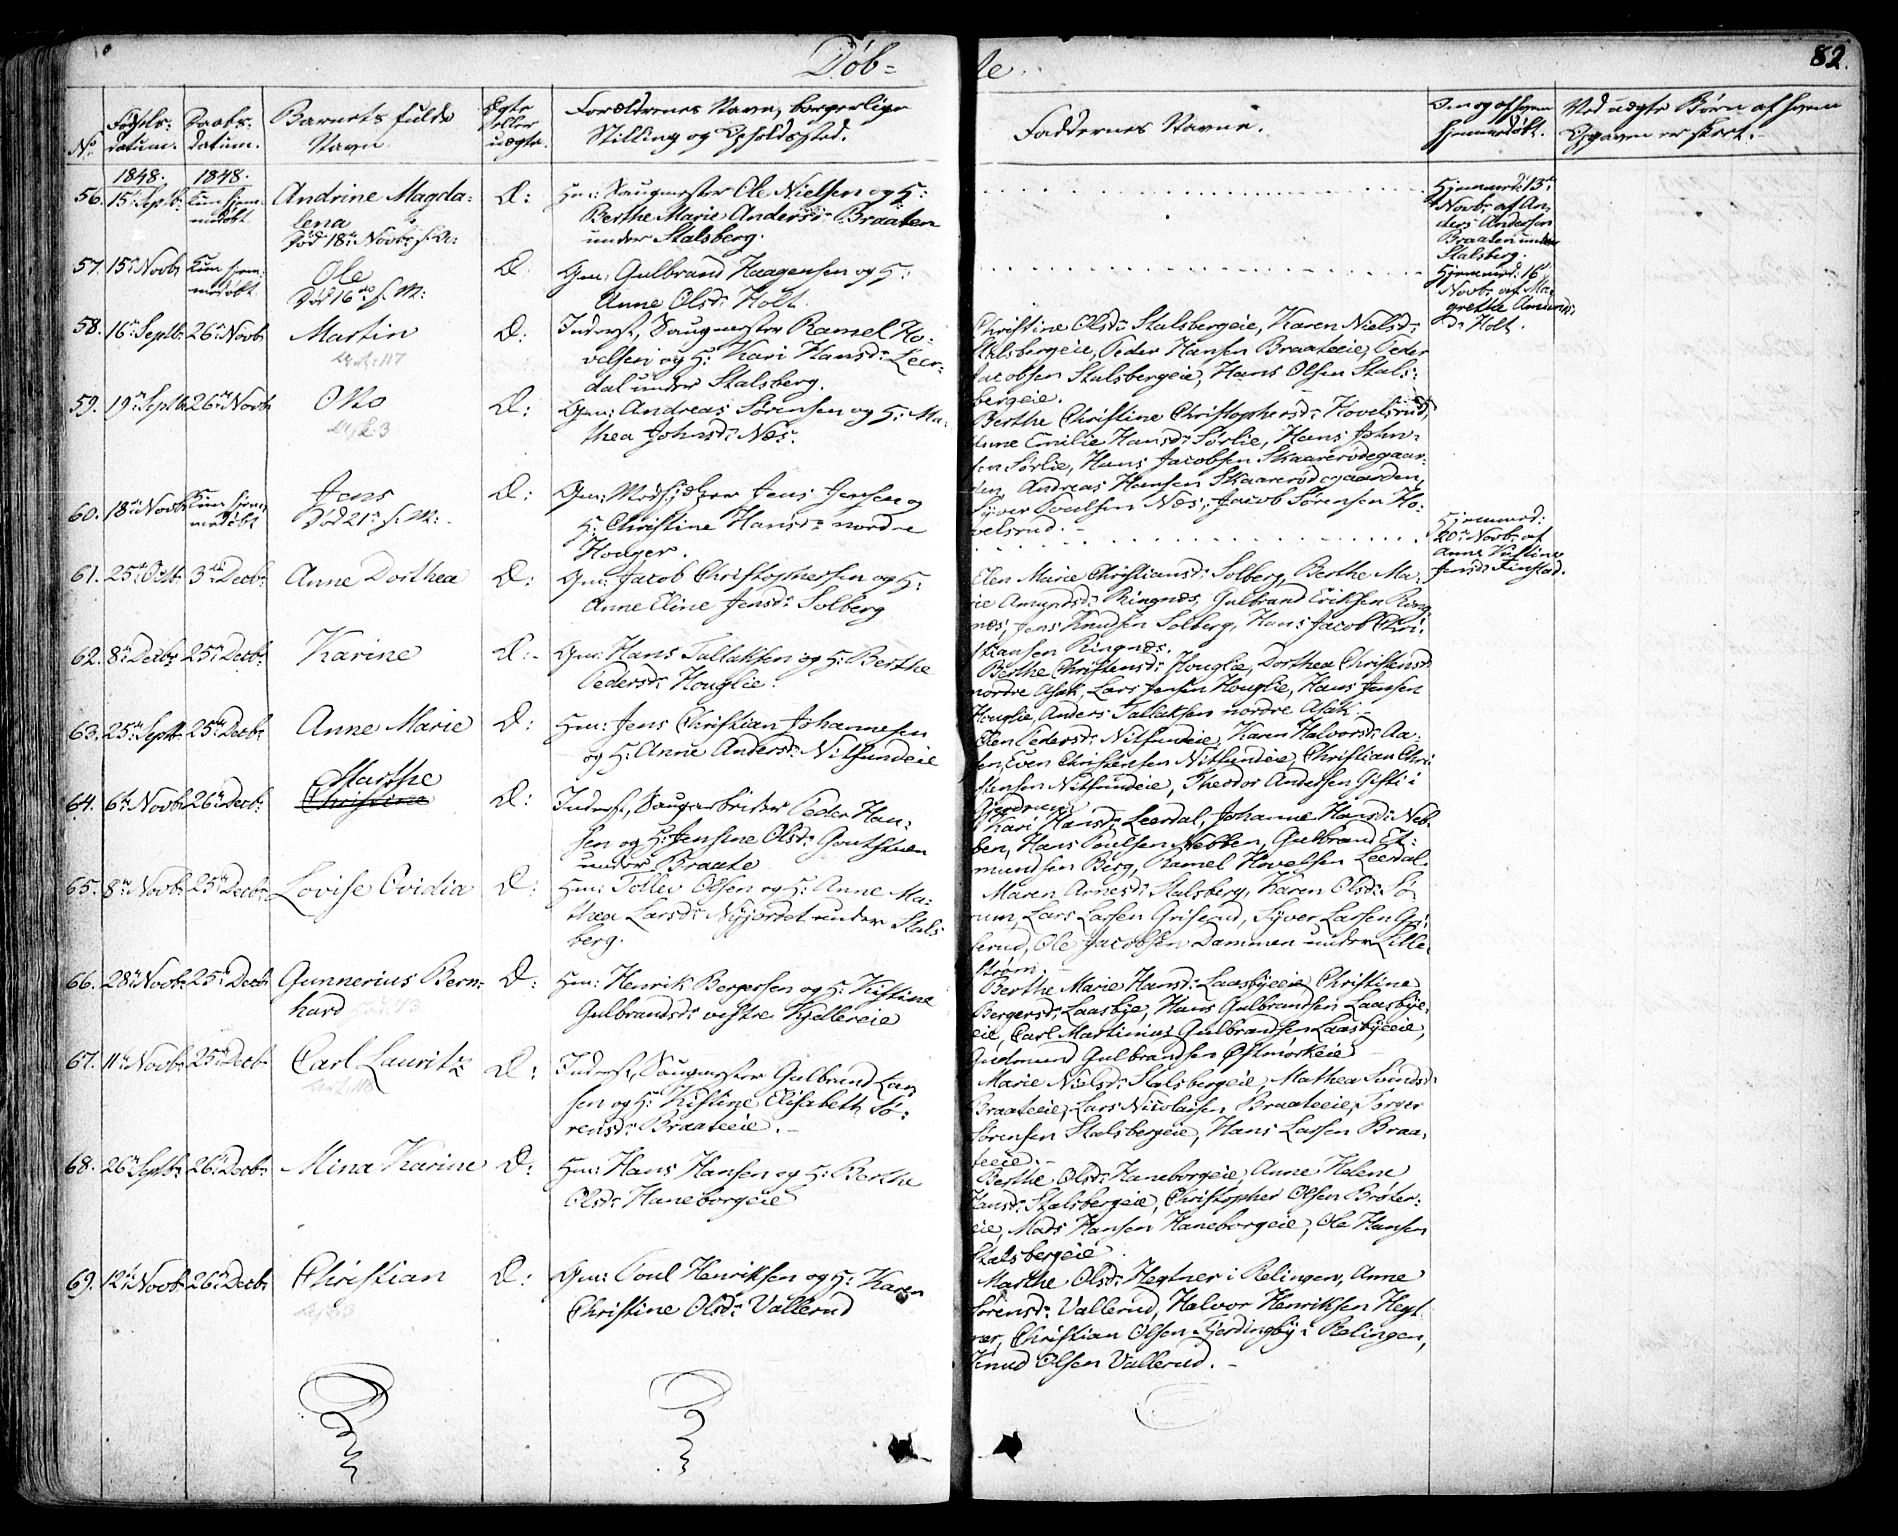 Døb=
te.
82.
No
Fødsels-
datum.
Daabs-
datum.
Barnets fulde
Navn
Ægte
eller
uægte.
Forældrenes Navn, borgerlige
Stilling og Opholdssted.
Faddernes Navne.
Om og af hvem
hjemmedøbt.
Ved uægte Børn af hvem
Opgaven er skeet.
1848.
1848.
56. 15de Septbr
kun hjem-
medøbt
Andrine Magda-
lena
død 18de Novbr s. A:
Æ:
Hm: Saugmester Ole Nielsen og H:
Berthe Marie Andersdr Braaten
under Stalsberg.
Hjemmed: 13de
Novbr af An-
ders Andersen
Braaten under
Stalsberg.
57. 15de Novbr
kun hjem-
medøbt
Ole
Død 16de s. M:
Æ:
Gm: Gulbrand Haagensen og H:
Anne Olsdr Holt.
Hjemmed: 16de
Novbr af Ma-
grethe Amunds-
dr Holt.
58. 16de Septbr 26de Novbr
Martin
Æ:
Inderst, Saugmester Ramel Ho-
velsen og H: Kari Hansdr Leer-
dal under Stalsberg.
Christine Olsdr Stalsbergeie, Karen Nielsdr
Stalsbergeie, Peder Hansen Braateeie, Peder
Jacobsen Stalsbergeie, Hans Olsen Stals-
bergeie.
59. 19de Septbr 26de Novbr
Otto
Æ:
Gm: Andreas Sørensen og H: Ma-
thea Johnsdr Nes.
Berthe Christine Christophersdr Hovelsrud,
Anne Emilie Hansdr Sørlie, Hans John-
sen Sørlie, Hans Jacobsen Skaarerødegaar-
den, Andreas Hansen Skaarerødegaarden,
Syver Poulsen Nes, Jacob Sørensen Ho-
velsrud.
60. 18de Novbr
kun hjem-
medøbt
Jens
Død 21de s. M:
Æ:
Gm: Medhjelper Jens Jensen og
H: Christine Hansdr nordre
Houger.
Hjemmed:
20de Novbr af
Anne Kirstine
Jensdr Finstad.
61. 25de Octbr 3de Decbr
Anne Dorthea
Æ:
Gm: Jacob Christophersen og H:
Anne Eline Jensdr Solberg
Elen Marie Christiansdr Solberg, Berthe Ma-
rie Amundsdr Ringnes, Gulbrand Eriksen Ring-
nes, Jens Knudsen Solberg, Hans Jacob Chri-
stiansen Ringnes.
62. 8de Octbr 25de Decbr
Karine
Æ:
Gm: Hans Tallaksen og H: Berthe
Pedersdr Houglie.
Berthe Christensdr Houglie, Dorthea Christensdr
nordre Asak, Lars Jensen Houglie, Hans Jensen
Houglie, Anders Tallaksen nordre Asak.
63. 25de Septbr 25de Decbr
Anne Marie
Æ:
Hm: Jens Christian Johannesen
og H: Anne Andersdr Nitsundeie
Elen Pedersdr Nitsundeie, Karen Halvorsdr Aa-
sen, Even Christensen Nitsundeie, Christian Chri-
stensen Nitsundeie, Theodor Andersen Gisti i
Gjerdrum
64. 6de Novbr 26de Decbr
Marthe
Christine
Æ:
Inderst, Saugarbeider Peder Han-
sen og H: Jensine Olsdr Goutstuen
under Braate
Kari Hansdr Leerdal, Johanne Hansdr Neb-
ben, Hans Poulsen Nebben, Gulbrand Et-
mundsen Berg, Ramel Hovelsen Leerdal.
65. 8de Novbr 25de Decbr
Lovise Ovidia
Æ:
Hm: Tollev Olsen og H: Anne Ma-
thea Larsdr Nyjordet under Stals-
berg.
Maren Arnesdr Stalsberg, Karen Olsdr Sø-
rum, Lars Larsen Griserud, Syver Larsen Gri-
serud, Ole Jacobsen Dammen under Lille-
strøm.
66. 28de Novbr 25de Decbr
Gunnerius Bern-
hard
Æ:
Hm: Henrik Bergersen og H: Kistine
Gulbrandsdr vestre Kjellereie
Berthe Marie Hansdr Laasbyeeie, Christine
Bergersdr Laasbye, Hans Gulbrandsen Laasbye-
eie, Carl Martinius Gulbrandsen Laasbyeeie,
Gudmund Gulbrandsen Østmorkeie
67. 11de Novbr 25de Decbr
Carl Lauritz
Æ:
Inderst, Saugmester Gulbrand Lar-
sen og H: Kistine Elisabeth Sø-
rensdr Braateeie.
Marie Nielsdr Stalsbergeie, Mathea Svendsdr
Braateeie, Lars Nicolaisen Braateeie, Torger
Sørensen Stalsbergeie, Hans Larsen Braa-
teeie.
68. 26de Septbr 26de Decbr
Mina Karine
Æ:
Hm: Hans Hansen og H: Berthe
Olsdr Haneborgeie
Berthe Olsdr Haneborgeie, Anne Helene
Hansdr Stalsbergeie, Christopher Olsen Brøter-
eie, Mads Hansen Haneborgeie, Ole Hansen
Stalsbergeie.
69. 12de Novbr 26de Decbr
Christian
Æ:
Gm: Poul Henriksen og H: Karen
Christine Olsdr Vallerud
Marthe Olsdr Hegtner i Relingen, Anne
Sørensdr Vallerud, Halvor Henriksen Hegt-
ner, Christian Olsen Fjerdingby i Relingen,
Knud Olsen Vallerud.